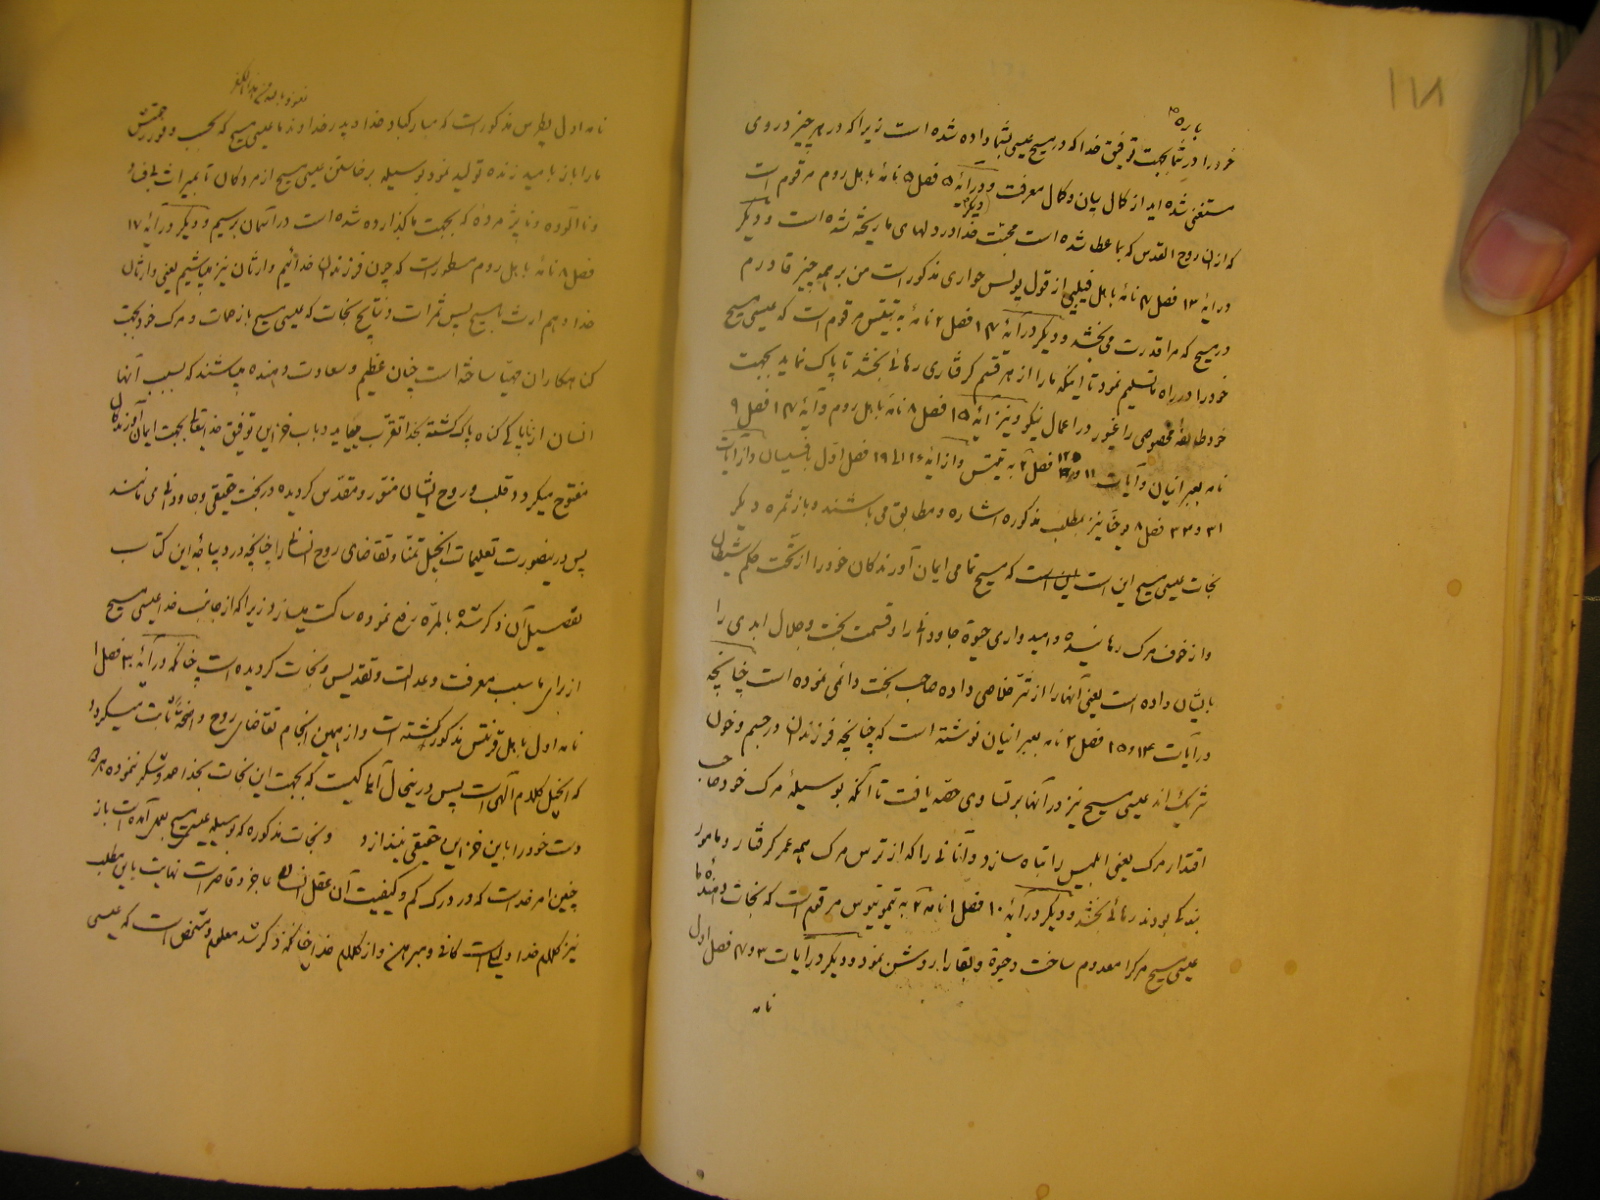 ۱۱۸
باره
خود را در شما بجهت توفیق خدا که در مسیح عیسی بشما داده شده است زیرا که در هر چیز در وی
مستغنی شده اید از کمال بیان و کمال معرفت و در آیهٔ ۵ فصل ۵ نامهٔ باهل روم مرقوم است
دیگر
که ازان روح القدس که بما عطا شده است محبّت خدا در دلهای ما ریخته شده است و دیگر
در آیهٔ ۱۳ فصل ۴ نامهٔ باهل فیلپی از قول پولس حواری مذکور است من بر همه چیز قادرم
در مسیح که مرا قدرت می بخشد و دیگر در آیهٔ ۱۴ فصل ۲ نامهٔ به تیتس مرقوم است که عیسی مسیح
خود را در راه ما تسلیم نمود تا اینکه ما را از هر قسم گرفتاری رهائی بخشد تا پاک نماید بجهت
خود طایفهٔ مخصوصی را غیور در اعمال نیکو و نیز آیهٔ ۱۵ فصل ۸ نامهٔ باهل روم و آیهٔ ۱۴ فصل ۹
نامه بعبرانیان و آیات ۱۱ و ۱۲ فصل ۲ به تیتس و از آیهٔ ۱۶ الی ۱۹ فصل اوّل بافسیان و از آیات
۳۱ و ۳۳ فصل ۸ یوحنّا نیز بمطلب مذکوره اشاره و مطابق می باشند و باز ثمره دیگر
نجات عیسی مسیح این است که مسیح تمامی ایمان آورندگان خود را از تحت حکم شیطان
و از خوف مرگ رهانیده و امیدواری حیوة جاودانی را و قسمت بخت و جلال ابدی را
بایشان داده است یعنی آنها را از شرّ خلاصی داده صاحب بخت دائمی نموده است چنانچه
در آیات ۱۴ و ۱۵ فصل ۲ نامه بعبرانیان نوشته است که چنانچه فرزندان در جسم و خون
شریک اند عیسی مسیح نیز در آنها بر تساوی حصّه یافت تا آنکه بوسیلهٔ مرگ خود صاحب
اقتدار مرگ یعنی ابلیس را تباه سازد و آنانی را که از ترس مرگ همه عمر گرفتار و مامور
بندگی بودند رهائی بخشد و دیگر در آیهٔ ۱۰ فصل ۱ نامه ۲ به تیموتیوس مرقوم است که نجات دهندهٔ ما
عیسی مسیح مرگرا معدوم ساخت و حیوة و بقا را روشن نمود و دیگر در آیات ۳ و ۴ فصل اول
نامه
نامه اول پطرس مذکور است که مبارکباد خدا و پدر خداوند ما عیسی مسیح که بحسب وفور رحمتش
ما را باز بامید زنده تولید نمود بوسیله برخاستن عیسی مسیح از مردگان تا بمیراث
و ناآلوده و ناپژمرده که بجهت ما گذارده شده است در آسمان برسیم و دیگر در آیهٔ ۱۷
فصل ۸ نامهٔ باهل روم مسطور است که چون فرزندان خدائیم وارثان نیز میباشیم یعنی وارثان
خدا و هم ارث با مسیح پس ثمرات و نتایج نجات که عیسی مسیح باز حمات و مرگ خود بجهت
گناهکاران مهیّا ساخته است چنان عظیم و سعادت دهنده میباشند که بسبب آنها
انسان از ناپاکی گناه پاک گشته بخدا تقرب مینماید و باب خزاین توفیق خدا بجهت ایمان آورندگان
مفتوح میگردد و قلب و روح ایشان منوّر و مقدّس گردیده در بخت حقیقی و جاودانی می مانند
پس درینصورت تعلیمات انجیل تمنّا و تقاضای روح انسانی را چنانچه در دیباچهٔ این کتاب
تفصیل آن ذکر شد بالمرّه رفع نموده ساکت میسازد زیرا که از جانب خدا عیسی مسیح
از برای ما سبب معرفت و عدالت و تقدیس و نجات گردیده است چنانکه در آیهٔ ۳۰ فصل ۱
نامه اول باهل قرنتس مذکور گشته است و از همین انجام تقاضای روح واضحاً ثابت میگردد
که انجیل کلام آلهی است پس درینحال آیا کیست که بجهت این نجات بخدا حمد و شکر نموده
دست خود را باین خزاین حقیقی نیندازد و نجات مذکوره که بوسیله عیسی مسیح بعمل آمده است باز
چنین امر خداست که در درک کم و کیفیت آن عقل انسان عاجز و قاصر است نهایت باین مطلب
نیز کلام خدا دلیلست کافی و مبرهن و از کلام خدا چنانکه ذکر شد معلوم و مشخص است که عیسی